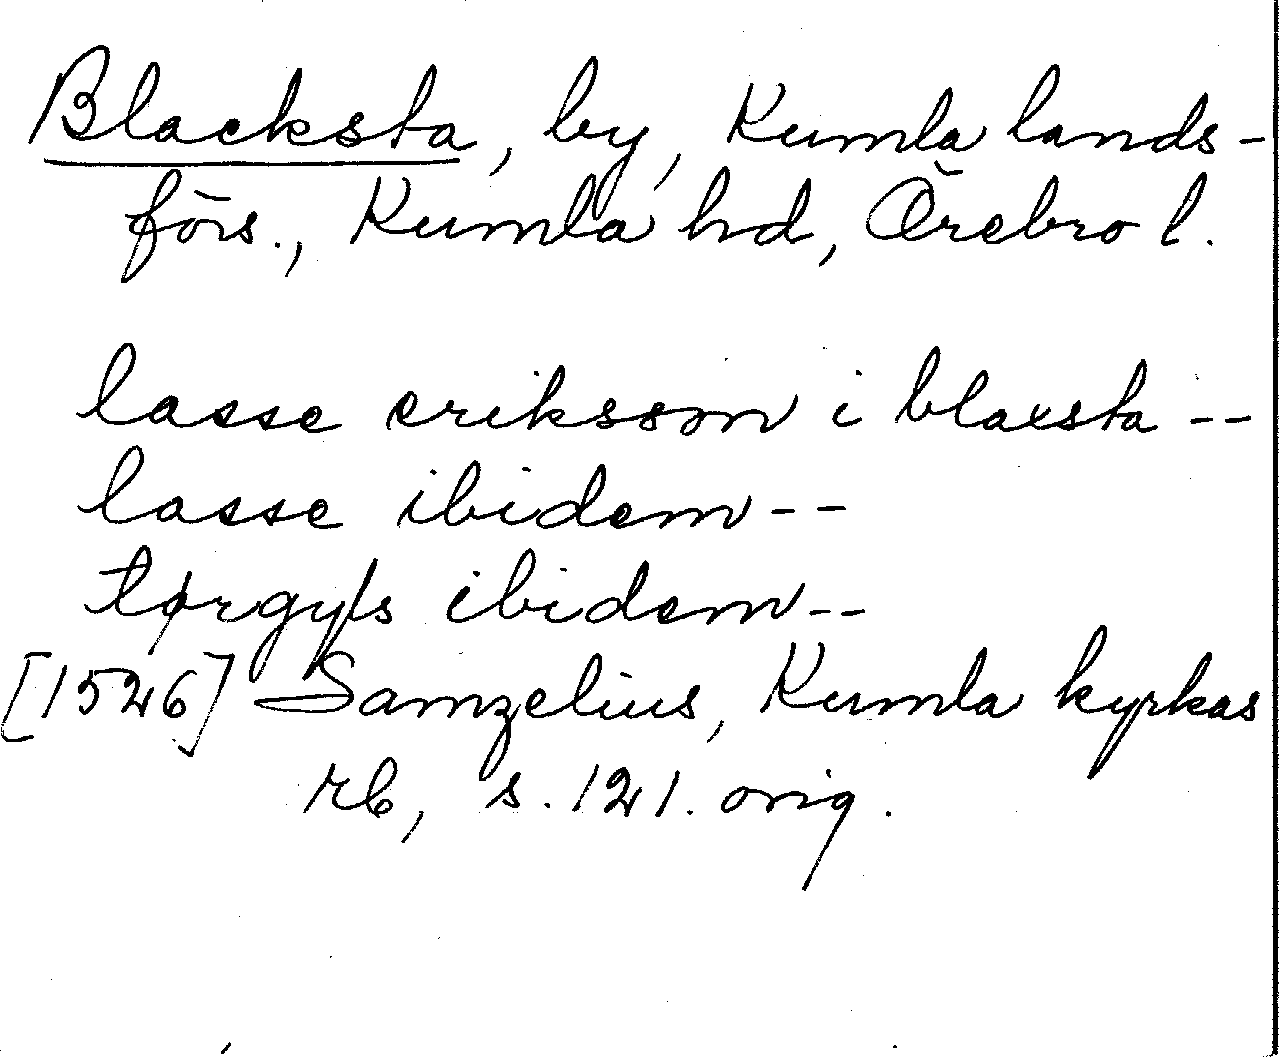 Blacksta, by, Kumla lands-
förs., Kumla hd, Örebro l.
lasse eriksson i blaxsta --
lasse ibidem --
tørgyls ibidem --
[1526] Samzelius, Kumla kyrkas
rb, s. 121. orig.